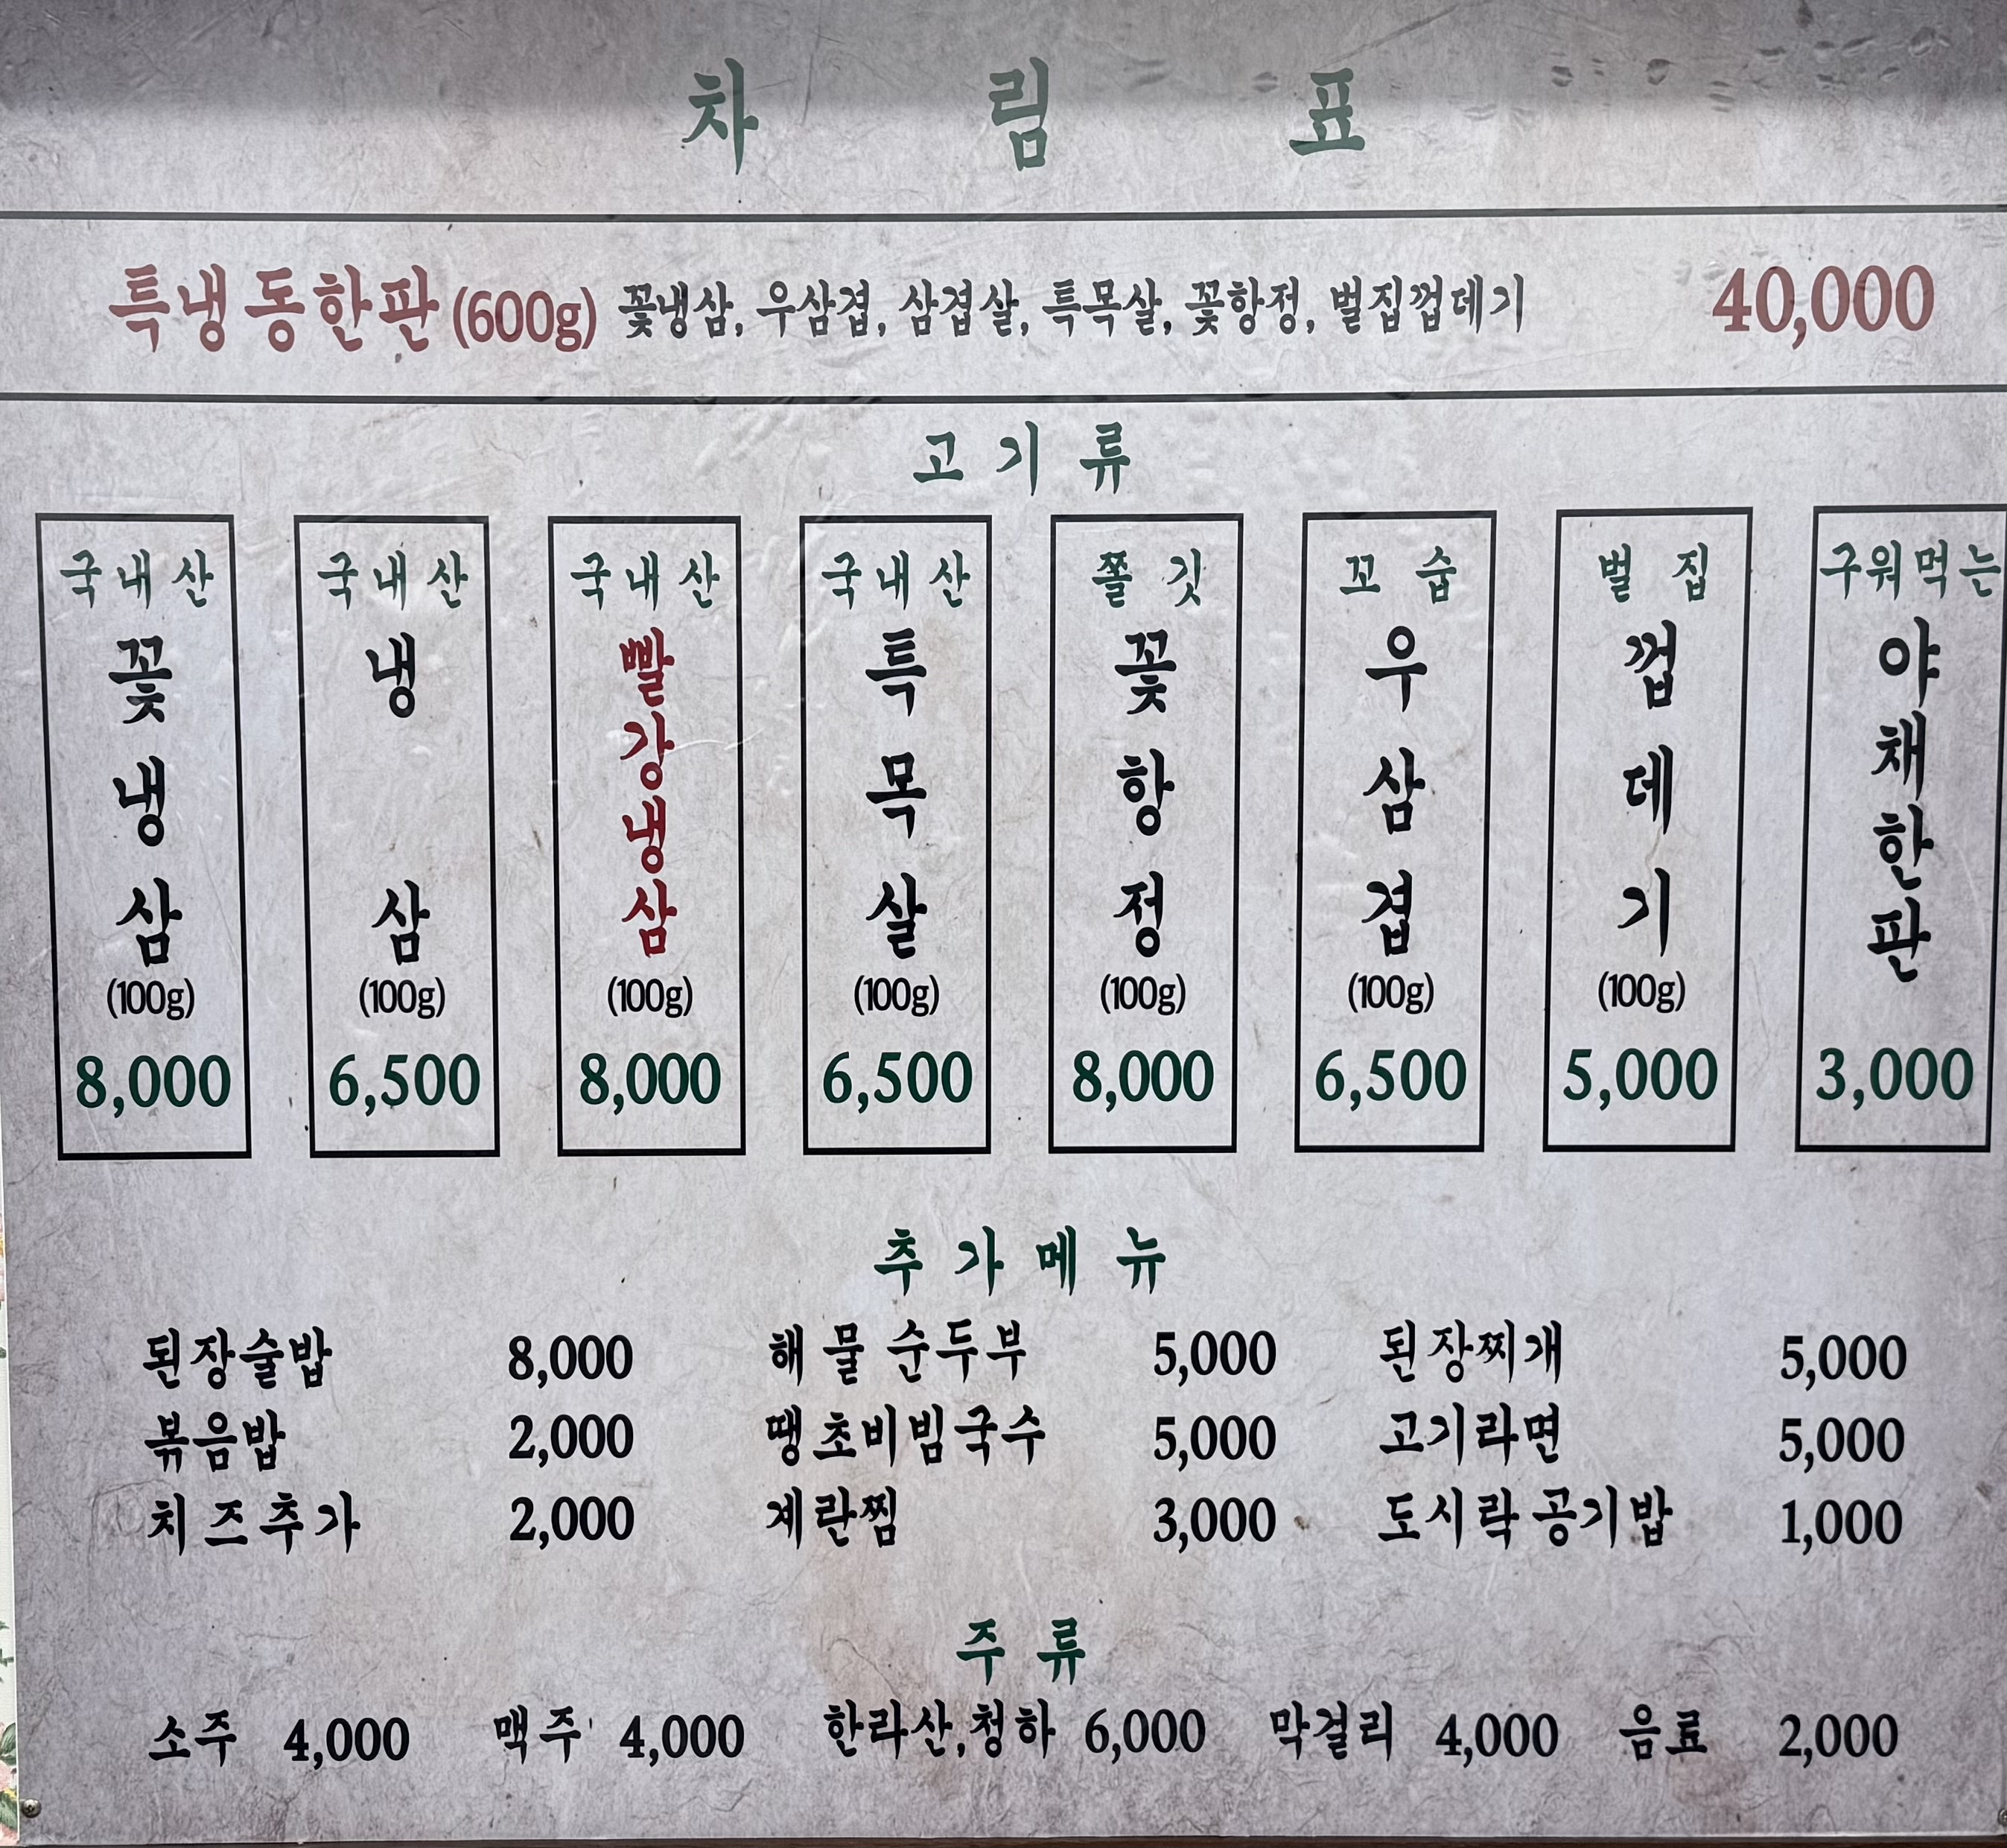 차림표
특냉동한판 (600g) 꽃냉삼, 우삼겹, 삼겹살, 특목살, 꽃항정, 벌집껍데기 40,000
고기류
국내산 꽃냉삼 (100g) 8,000
국내산 냉삼 (100g) 6,500
국내산 빨강냉삼 (100g) 8,000
국내산 특목살 (100g) 6,500
쫄깃 꽃항정 (100g) 8,000
꼬숩 우삼겹 (100g) 6,500
벌집 껍데기 (100g) 5,000
구워먹는 야채한판 3,000
추가메뉴
된장술밥 8,000 해물 순두부 5,000 된장찌개 5,000
볶음밥 2,000 땡초비빔국수 5,000 고기라면 5,000
치즈추가 2,000 계란찜 3,000 도시락공기밥 1,000
주류
소주 4,000 맥주 4,000 한라산,청하 6,000 막걸리 4,000 음료 2,000